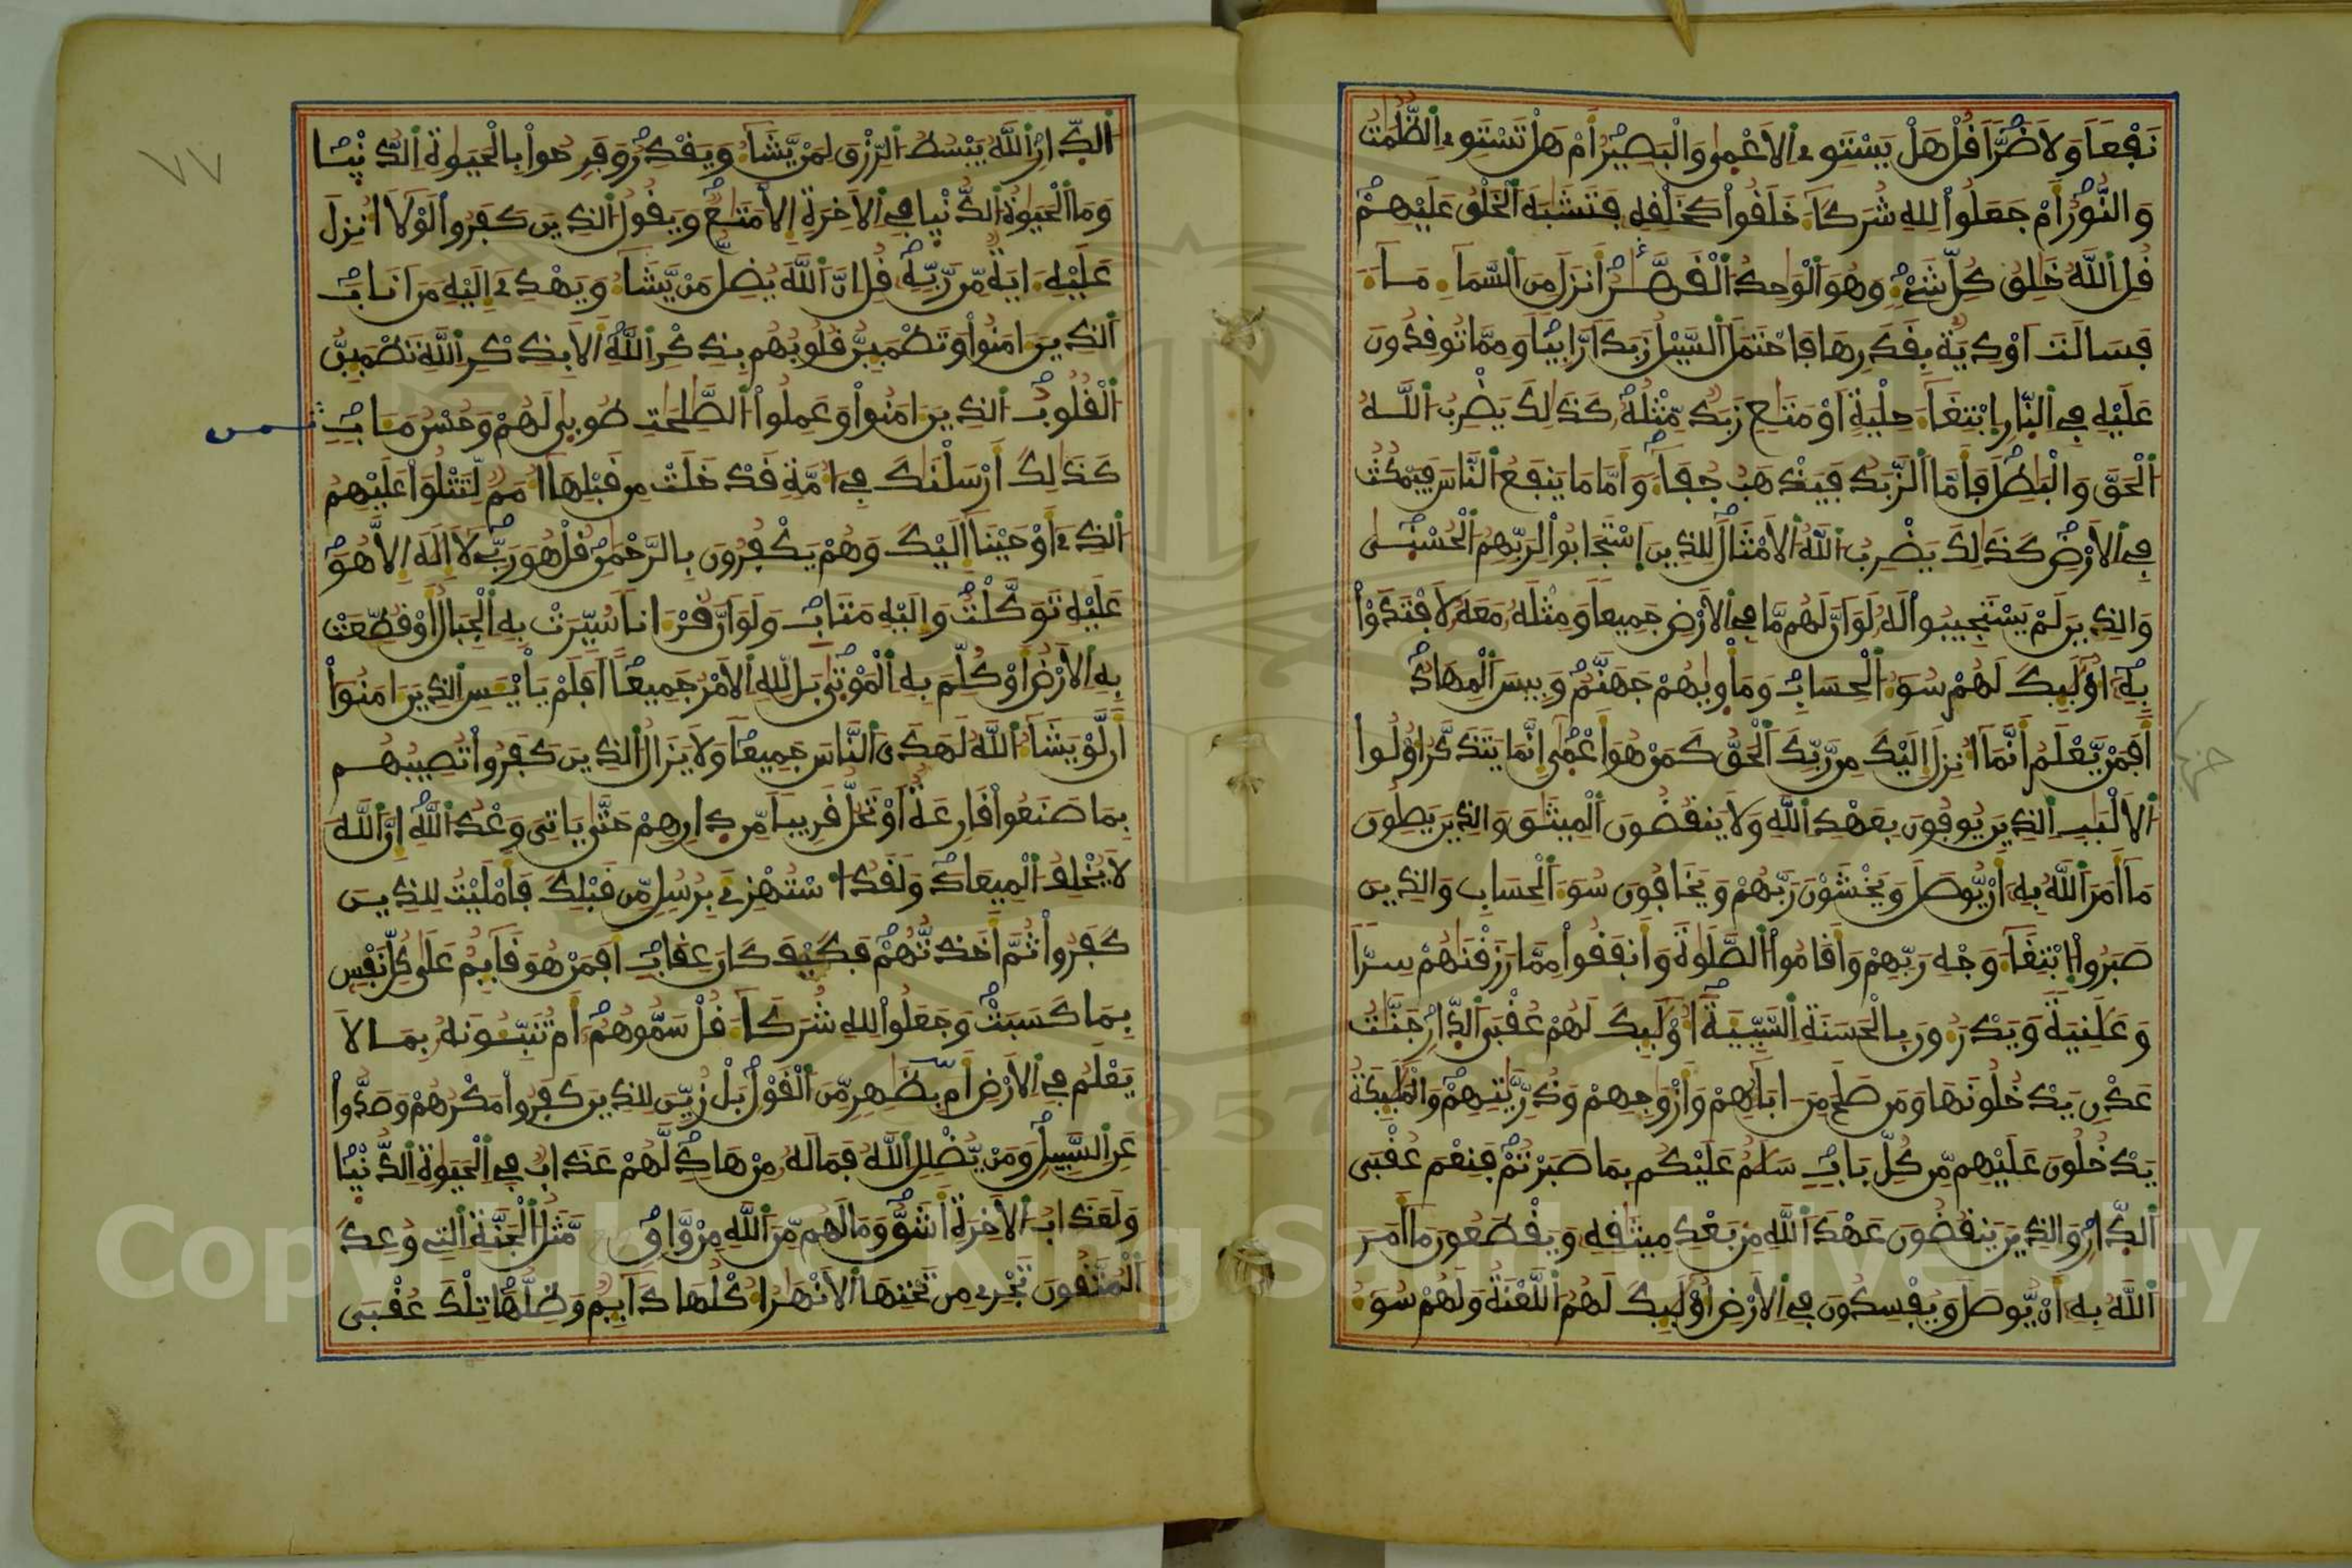 نَفْعًا وَلَا ضَرًّا قُلْ هَلْ يَسْتَوِي الْأَعْمَىٰ وَالْبَصِيرُ أَمْ هَلْ تَسْتَوِي الظُّلُمَٰتُ
وَالنُّورُ أَمْ جَعَلُوا لِلهِ شُرَكَآءَ خَلَقُوا كَخَلْقِهِ فَتَشَٰبَهَ الْخَلْقُ عَلَيْهِمْ
قُلِ اللَّهُ خَٰلِقُ كُلِّ شَيْءٍ وَهُوَ الْوَٰحِدُ الْقَهَّٰرُ أَنزَلَ مِنَ السَّمَآءِ مَآءً
فَسَالَتْ أَوْدِيَةٌ بِقَدَرِهَا فَاحْتَمَلَ السَّيْلُ زَبَدًا رَّابِيًا وَمِمَّا تُوقِدُونَ
عَلَيْهِ فِي النَّارِ ابْتِغَآءَ حِلْيَةٍ أَوْ مَتَٰعٍ زَبَدٌ مِّثْلُهُ كَذَٰلِكَ يَضْرِبُ اللَّهُ
الْحَقَّ وَالْبَٰطِلَ فَأَمَّا الزَّبَدُ فَيَذْهَبُ جُفَآءً وَأَمَّا مَا يَنفَعُ النَّاسَ فَيَمْكُثُ
فِي الْأَرْضِ كَذَٰلِكَ يَضْرِبُ اللَّهُ الْأَمْثَالَ لِلذِينَ اسْتَجَابُوا لِرَبِّهِمُ الْحُسْنَىٰ
وَالذِينَ لَمْ يَسْتَجِيبُوا لَهُ لَوَ اَنَّ لَهُم مَّا فِي الْأَرْضِ جَمِيعًا وَمِثْلَهُ مَعَهُ لَافْتَدَوْا
بِهِ أُوْلَٰٓئِكَ لَهُمْ سُوٓءُ الْحِسَابِ وَمَأْوَىٰهُمْ جَهَنَّمُ وَبِيسَ الْمِهَادُ
أَفَمَنْ يَّعْلَمُ أَنَّمَا أُنزِلَ إِلَيْكَ مِن رَّبِّكَ الْحَقُّ كَمَنْ هُوَ أَعْمَىٰ إِنَّمَا يَتَذَكَّرُ أُوْلُوا
الْأَلْبَٰبِ الذِينَ يُوفُونَ بِعَهْدِ اللَّهِ وَلَا يَنقُضُونَ الْمِيثَٰقَ وَالذِينَ يَصِلُونَ
مَا أَمَرَ اللَّهُ بِهِ أَنْ يُّوصَلَ وَيَخْشَوْنَ رَبَّهُمْ وَيَخَافُونَ سُوٓءَ الْحِسَابِ وَالذِينَ
صَبَرُوا ابْتِغَآءَ وَجْهِ رَبِّهِمْ وَأَقَامُوا الصَّلَوٰةَ وَأَنفَقُوا مِمَّا رَزَقْنَٰهُمْ سِرًّا
وَعَلَٰنِيَةً وَيَدْرَءُونَ بِالْحَسَنَةِ السَّيِّئَةَ أُوْلَٰٓئِكَ لَهُمْ عُقْبَى الدِّارِ جَنَّٰتُ
عَدْنٍ يَدْخُلُونَهَا وَمَن صَلَحَ مِنَ ابَآئِهِمْ وَأَزْوَٰجِهِمْ وَذُرِّيَّٰتِهِمْ وَالْمَلَٰٓئِكَةُ
يَدْخُلُونَ عَلَيْهِم مِّن كُلِّ بَابٍ سَلَٰمٌ عَلَيْكُم بِمَا صَبَرْتُمْ فَنِعْمَ عُقْبَى
الدِّارِ وَالذِينَ يَنقُضُونَ عَهْدَ اللَّهِ مِن بَعْدِ مِيثَٰقِهِ وَيَقْطَعُونَ مَا أَمَرَ
اللَّهُ بِهِ أَنْ يُّوصَلَ وَيُفْسِدُونَ فِي الْأَرْضِ أُوْلَٰٓئِكَ لَهُمُ اللَّعْنَةُ وَلَهُمْ سُوٓءُ
٧٧
الدِّارِ اللَّهُ يَبْسُطُ الرِّزْقَ لِمَنْ يَّشَآءُ وَيَقْدِرُ وَفَرِحُوا بِالْحَيَوٰةِ الدُّنْيَا
وَمَا الْحَيَوٰةُ الدُّنْيَا فِي الْأَخِرَةِ إِلَّا مَتَٰعٌ وَيَقُولُ الذِينَ كَفَرُوا لَوْلَا أُنزِلَ
عَلَيْهِ ءَايَةٌ مِّن رَّبِّهِ قُلِ انَّ اللَّهَ يُضِلُّ مَنْ يَّشَآءُ وَيَهْدِي إِلَيْهِ مَنَ انَابَ
الذِينَ ءَامَنُوا وَتَطْمَئِنُّ قُلُوبُهُم بِذِكْرِ اللَّهِ أَلَا بِذِكْرِ اللَّهِ تَطْمَئِنُّ
الْقُلُوبُ الذِينَ ءَامَنُوا وَعَمِلُوا الصَّٰلِحَٰتِ طُوبَىٰ لَهُمْ وَحُسْنُ مَـَٔابٍ
ثمن
كَذَٰلِكَ أَرْسَلْنَٰكَ فِي أُمَّةٍ قَدْ خَلَتْ مِن قَبْلِهَا أُمَمٌ لِّتَتْلُوَا عَلَيْهِمُ
الذِي أَوْحَيْنَا إِلَيْكَ وَهُمْ يَكْفُرُونَ بِالرَّحْمَٰنِ قُلْ هُوَ رَبِّي لَا إِلَٰهَ إِلَّا هُوَ
عَلَيْهِ تَوَكَّلْتُ وَإِلَيْهِ مَتَابِ وَلَوَ اَنَّ قُرْءَانًا سُيِّرَتْ بِهِ الْجِبَالُ أَوْ قُطِّعَتْ
بِهِ الْأَرْضُ أَوْ كُلِّمَ بِهِ الْمَوْتَىٰ بَل لِّلهِ الْأَمْرُ جَمِيعًا أَفَلَمْ يَاْيْـَٔسِ الذِينَ ءَامَنُوا
أَن لَّوْ يَشَآءُ اللَّهُ لَهَدَى النَّاسَ جَمِيعًا وَلَا يَزَالُ الذِينَ كَفَرُوا تُصِيبُهُم
بِمَا صَنَعُوا قَارِعَةٌ أَوْ تَحُلُّ قَرِيبًا مِّن دِارِهِمْ حَتَّىٰ يَاتِيَ وَعْدُ اللَّهِ إِنَّ اللَّهَ
لَا يُخْلِفُ الْمِيعَادَ وَلَقَدُ اسْتُهْزِئَ بِرُسُلٍ مِّن قَبْلِكَ فَأَمْلَيْتُ لِلذِينَ
كَفَرُوا ثُمَّ أَخَذتُّهُمْ فَكَيْفَ كَانَ عِقَابِ أَفَمَنْ هُوَ قَآئِمٌ عَلَىٰ كُلِّ نَفْسٍ
بِمَا كَسَبَتْ وَجَعَلُوا لِلهِ شُرَكَآءَ قُلْ سَمُّوهُمْ أَمْ تُنَبِّـُٔونَهُ بِمَا لَا
يَعْلَمُ فِي الْأَرْضِ أَم بِظَٰهِرٍ مِّنَ الْقَوْلِ بَلْ زُيِّنَ لِلذِينَ كَفَرُوا مَكْرُهُمْ وَصَدُّوا
عَنِ السَّبِيلِ وَمَنْ يُّضْلِلِ اللَّهُ فَمَا لَهُ مِنْ هَادٍ لَّهُمْ عَذَابٌ فِي الْحَيَوٰةِ الدُّنْيَا
وَلَعَذَابُ الْأَخِرَةِ أَشَقُّ وَمَا لَهُم مِّنَ اللَّهِ مِنْ وَّاقٍ مَّثَلُ الْجَنَّةِ التِي وُعِدَ
الْمُتَّقُونَ تَجْرِي مِن تَحْتِهَا الْأَنْهَٰرُ أُكْلُهَا دَآئِمٌ وَظِلُّهَا تِلْكَ عُقْبَى
Copyright © King Saud University
1957